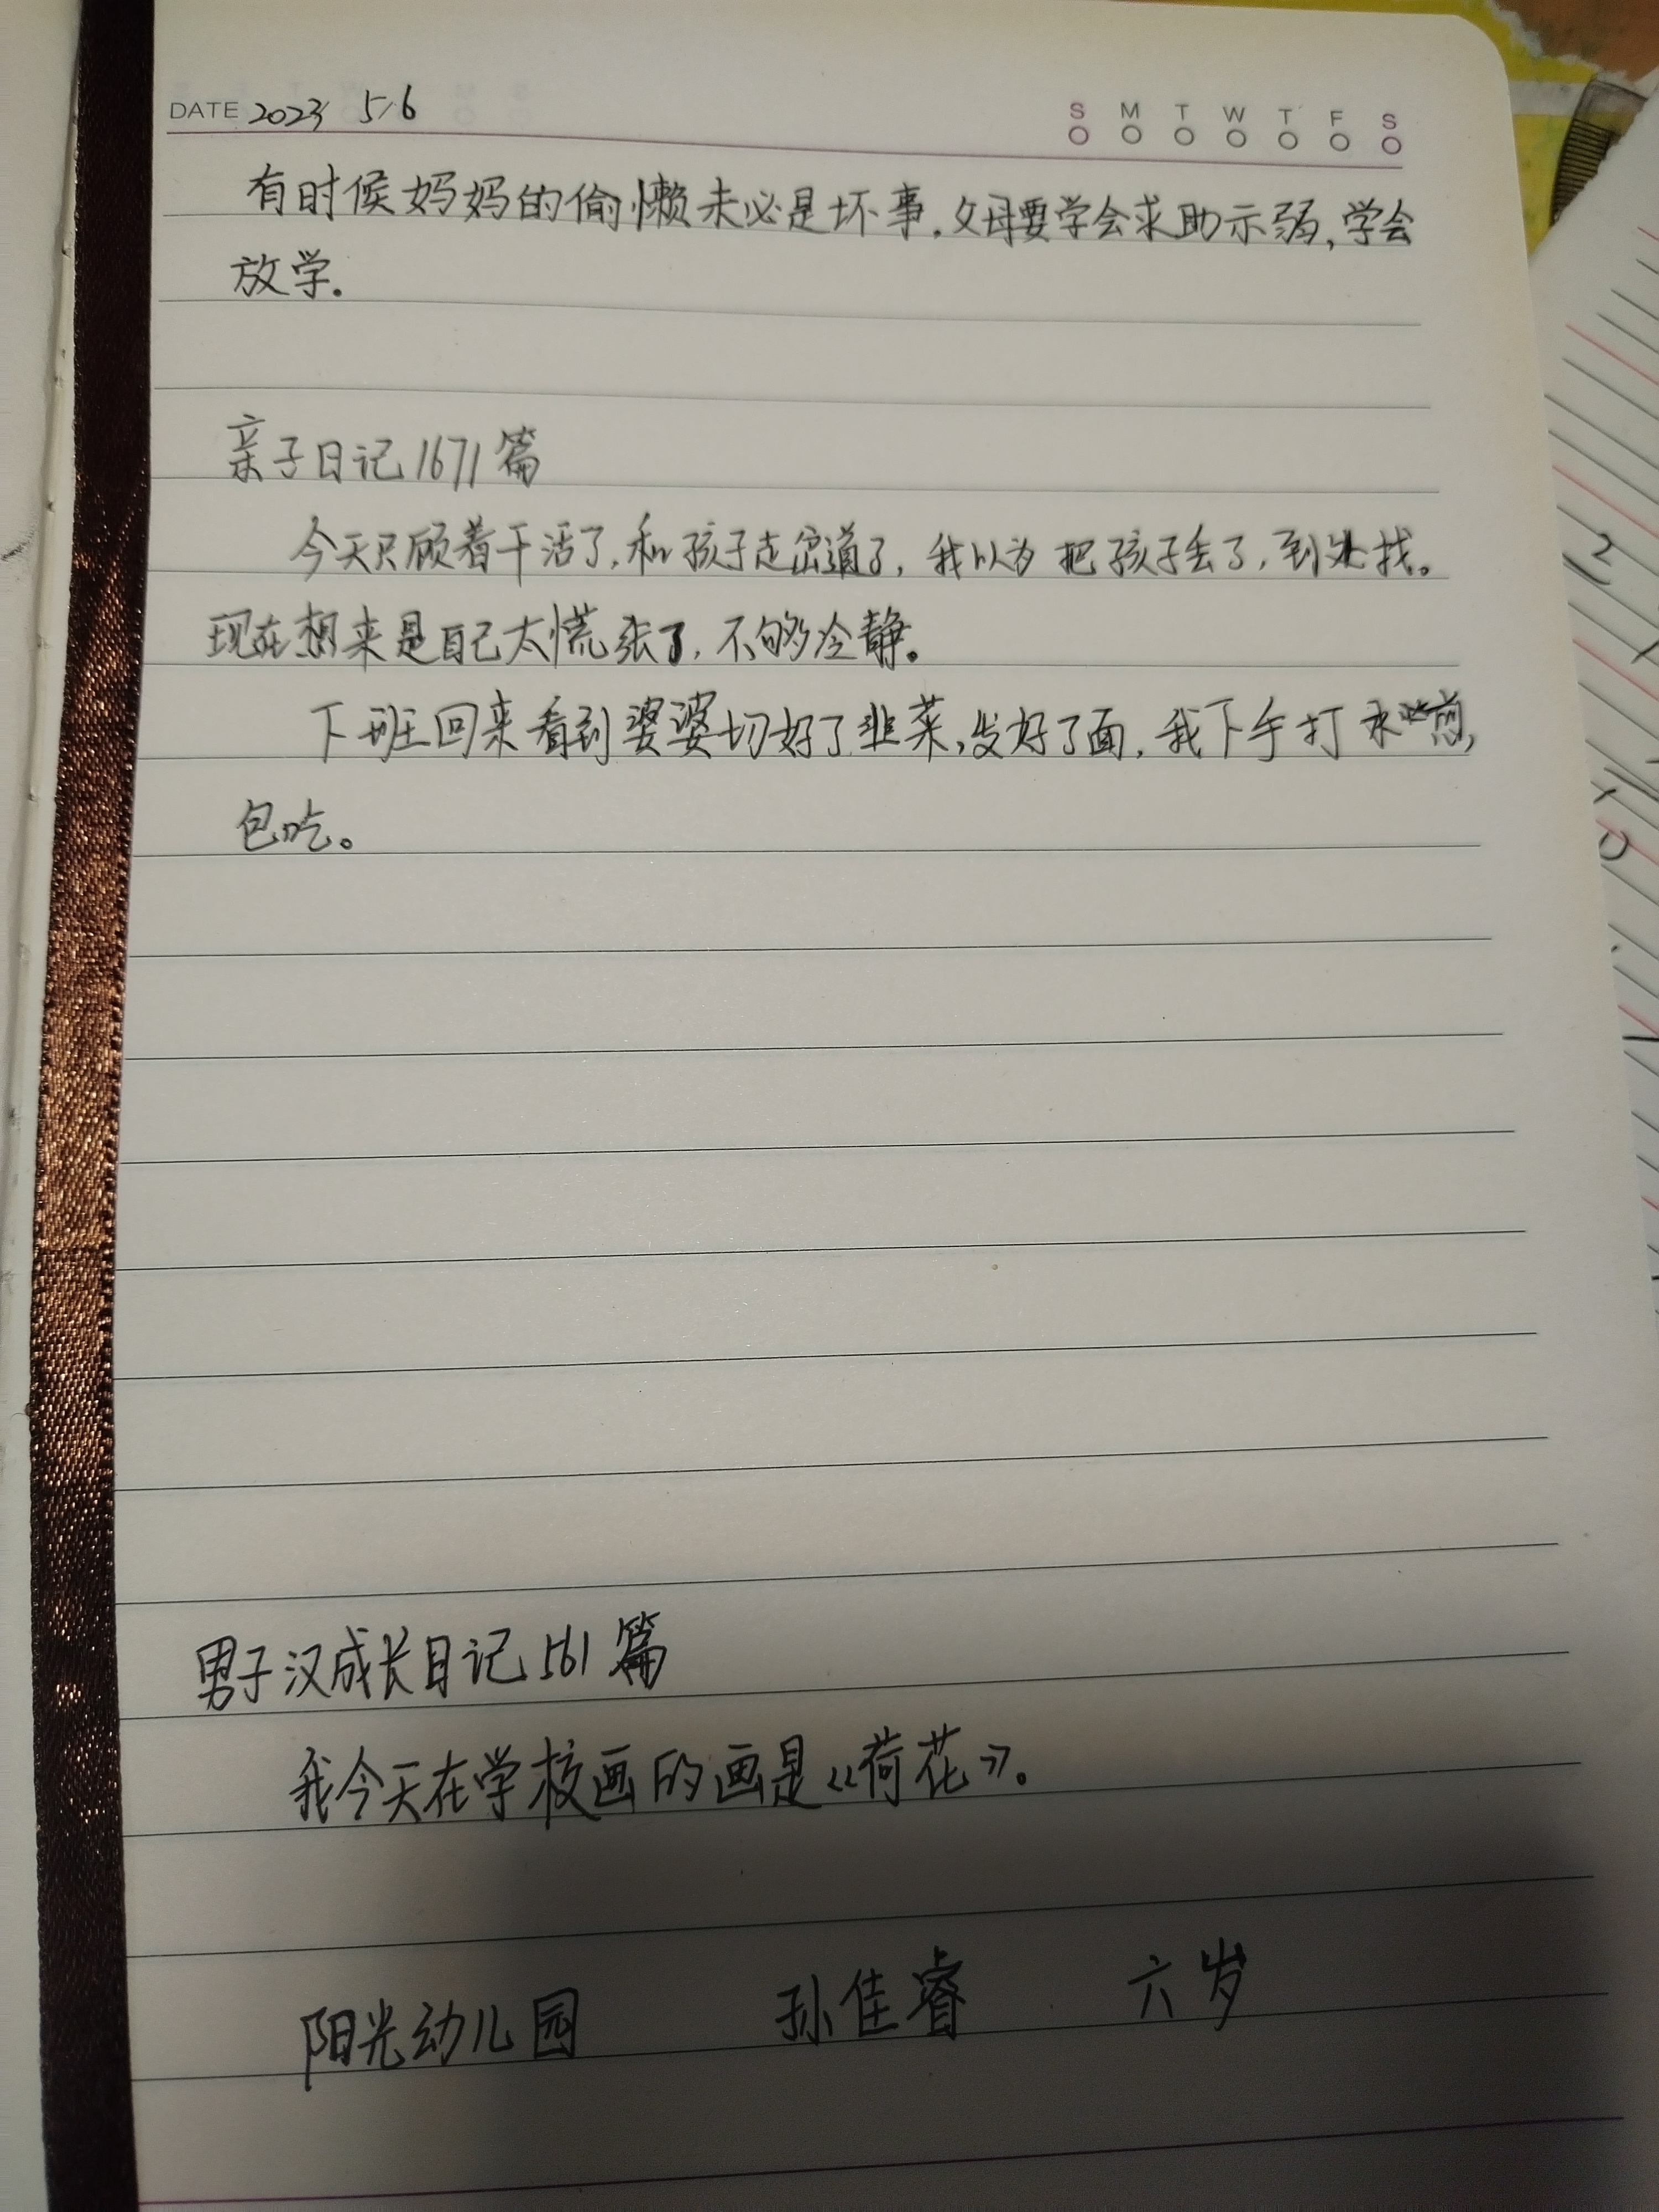 DATE 2023 5/6
S M T W T F S
有时候妈妈的偷懒未必是坏事.父母要学会求助示弱,学会
放学.
亲子日记1671篇
今天只顾着干活了,和孩子走岔道了,我以为把孩子丢了,到处找。
现在想来是自己太慌张了,不够冷静。
下班回来看到婆婆切好了韭菜,发好了面,我下手打水煎,
包吃。
男子汉成长日记561篇
我今天在学校画的画是《荷花》。
阳光幼儿园 孙佳睿 六岁